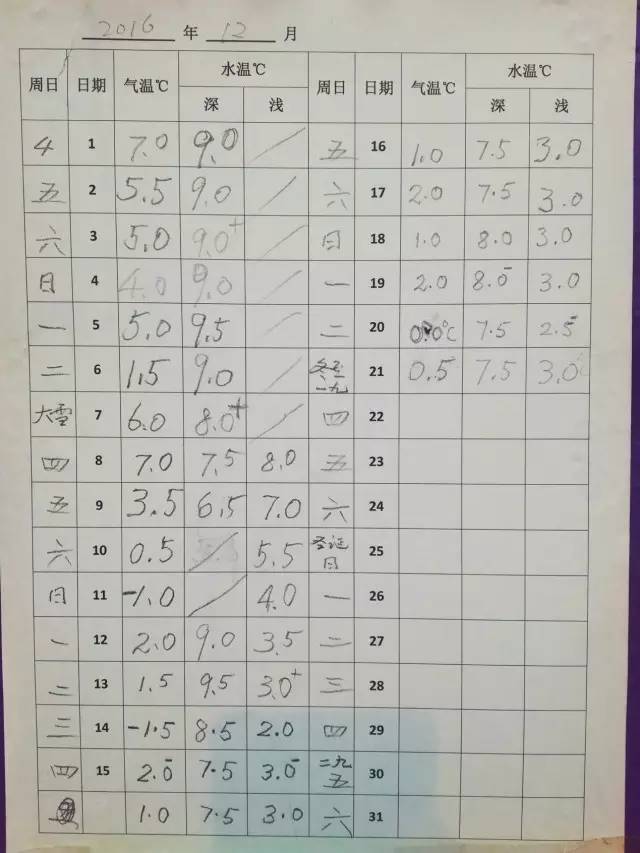 2016 年 12 月
周日 日期 气温℃ 水温℃ 周日 日期 气温℃ 水温℃
深 浅 深 浅
4 1 7.0 9.0 / 五 16 1.0 7.5 3.0
五 2 5.5 9.0 / 六 17 2.0 7.5 3.0
六 3 5.0 9.0+ / 日 18 1.0 8.0 3.0
日 4 4.0 9.0 / 一 19 2.0 8.0- 3.0
一 5 5.0 9.5 / 二 20 0.0℃ 7.5 2.5-
二 6 1.5 9.0 / 冬至一九 21 0.5 7.5 3.0
大雪 7 6.0 8.0+ / 四 22
四 8 7.0 7.5 8.0 五 23
五 9 3.5 6.5 7.0 六 24
六 10 0.5 / 5.5 圣诞日 25
日 11 -1.0 / 4.0 一 26
一 12 2.0 9.0 3.5 二 27
二 13 1.5 9.5 3.0+ 三 28
三 14 -1.5 8.5 2.0 四 29
四 15 2.0- 7.5 3.0- 二九五 30
1.0 7.5 3.0 六 31